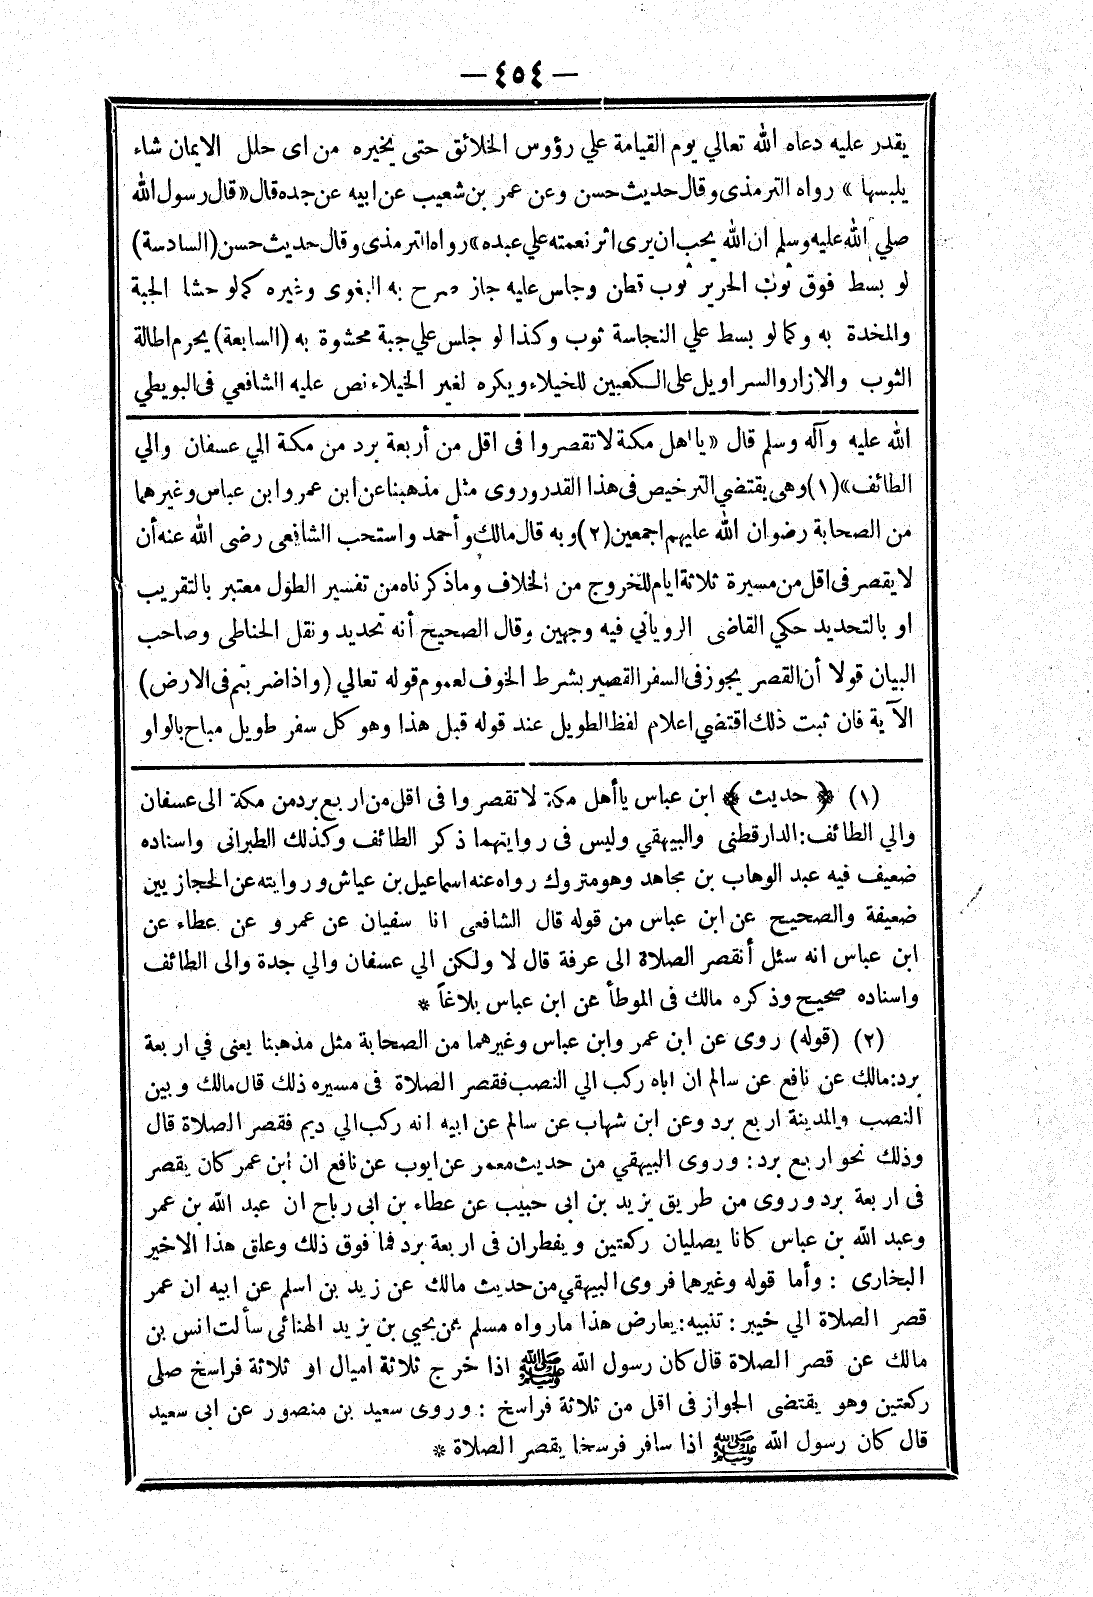 — ٤٥٤ —
يقدر عليه دعاه الله تعالي يوم القيامة علي رؤوس الخلائق حتى يخيره من اى حلل الايمان شاء
يلبسها » رواه الترمذى وقال حديث حسن وعن عمر بن شعيب عن ابيه عن جده قال « قال رسول الله
صلي الله عليه وسلم ان الله يحب ان يرى اثر نعمته علي عبده » رواه الترمذى وقال حديث حسن (السادسة)
لو بسط فوق ثوب الحرير ثوب قطن وجلس عليه جاز صرح به البغوى وغيره كما لو حشا الجبة
والمخدة به وكما لو بسط علي النجاسة ثوب وكذا لو جلس علي جبة محشوة به (السابعة) يحرم اطالة
الثوب والازار والسراويل على الكعبين للخيلاء ويكره لغير الخيلاء نص عليه الشافعي فى البويطي
الله عليه وآله وسلم قال « يا اهل مكة لا تقصروا فى اقل من أربعة برد من مكة الي عسفان والي
الطائف» (١) وهى يقتضي الترخيص فى هذا القدر وروى مثل مذهبنا عن ابن عمر وابن عباس وغيرهما
من الصحابة رضوان الله عليهم اجمعين (٢) وبه قال مالك وأحمد واستحب الشافعى رضى الله عنه أن
لا يقصر فى اقل من مسيرة ثلاثة ايام للخروج من الخلاف وما ذكرناه من تفسير الطول معتبر بالتقريب
او بالتحديد حكي القاضى الرويانى فيه وجهين وقال الصحيح أنه تحديد ونقل الحناطى وصاحب
البيان قولا أن القصر يجوز فى السفر القصير بشرط الخوف لعموم قوله تعالي (واذا ضربتم فى الارض)
الآية فان ثبت ذلك اقتضي اعلام لفظ الطويل عند قوله قبل هذا وهو كل سفر طويل مباح بالواو
(١) ﴿ حديث ﴾ ابن عباس يا أهل مكة لا تقصروا فى اقل من اربع برد من مكة الى عسفان
والي الطائف: الدارقطنى والبيهقي وليس فى روايتهما ذكر الطائف وكذلك الطبرانى واسناده
ضعيف فيه عبد الوهاب بن مجاهد وهو متروك رواه عنه اسماعيل بن عياش وروايته عن الحجازيين
ضعيفة والصحيح عن ابن عباس من قوله قال الشافعى انا سفيان عن عمرو عن عطاء عن
ابن عباس انه سئل أنقصر الصلاة الى عرفة قال لا ولكن الي عسفان والي جدة والى الطائف
واسناده صحيح وذكره مالك فى الموطأ عن ابن عباس بلاغاً *
(٢) (قوله) روى عن ابن عمر وابن عباس وغيرهما من الصحابة مثل مذهبنا يعنى في اربعة
برد: مالك عن نافع عن سالم ان اباه ركب الي النصب فقصر الصلاة فى مسيره ذلك قال مالك وبين
النصب والمدينة اربع برد وعن ابن شهاب عن سالم عن ابيه انه ركب الي ديم فقصر الصلاة قال
وذلك نحو اربع برد: وروى البيهقي من حديث معمر عن ايوب عن نافع ان ابن عمر كان يقصر
فى اربعة برد وروى من طريق يزيد بن ابى حبيب عن عطاء بن ابى رباح ان عبد الله بن عمر
وعبد الله بن عباس كانا يصليان ركعتين ويفطران فى اربعة برد فما فوق ذلك وعلق هذا الاخير
البخارى : وأما قوله وغيرهما فروى البيهقي من حديث مالك عن زيد بن اسلم عن ابيه ان عمر
قصر الصلاة الي خيبر : تنبيه: يعارض هذا ما رواه مسلم عن يحيى بن يزيد الهنائى سألت انس بن
مالك عن قصر الصلاة قال كان رسول الله ﷺ اذا خرج ثلاثة اميال او ثلاثة فراسخ صلى
ركعتين وهو يقتضى الجواز فى اقل من ثلاثة فراسخ : وروى سعيد بن منصور عن ابى سعيد
قال كان رسول الله ﷺ اذا سافر فرسخا يقصر الصلاة *